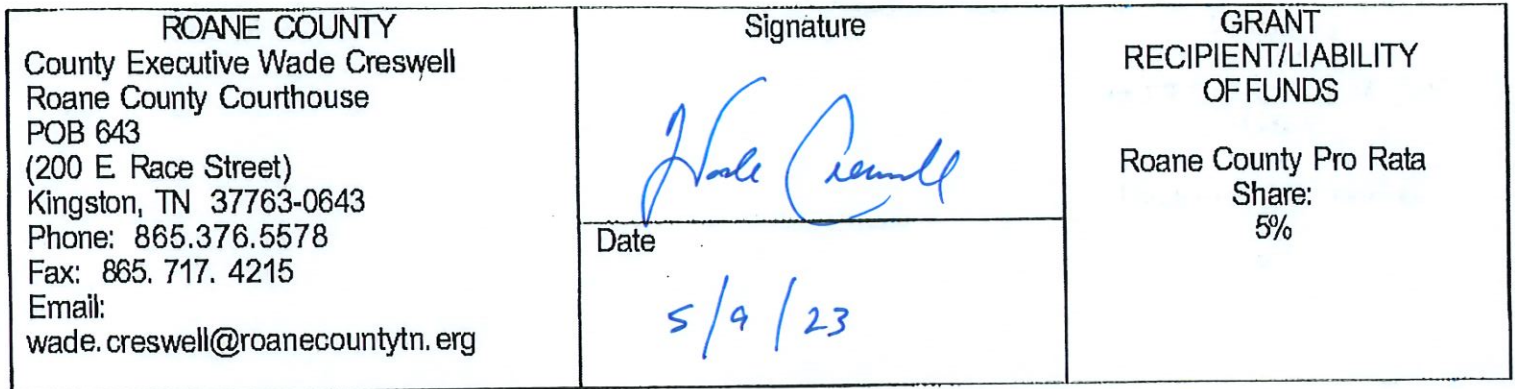 ROANE COUNTY
County Executive Wade Creswell
Roane County Courthouse
POB 643
(200 E Race Street)
Kingston, TN 37763-0643
Phone: 865.376.5578
Fax: 865. 717. 4215
Email:
wade.creswell@roanecountytn.erg
Signature
Wade Creswell
Date
5/9/23
GRANT
RECIPIENT/LIABILITY
OF FUNDS
Roane County Pro Rata
Share:
5%